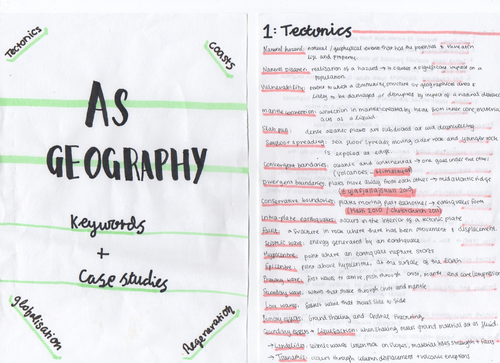 Tectonics
Coasts
AS
GEOGRAPHY
Keywords
+
Case studies
globalisation
Regeneration
1: Tectonics
Natural hazard: natural / geophysical event that has the potential to threaten
life and property.
Natural disaster: realisation of a hazard → it causes a significant impact on a
population.
Vulnerability: extent to which a community, structure or geographical area is
likely to be damaged or disrupted by impact of a natural disaster
Mantle convection: convection in mantle created by heat from inner core, mantle
acts as a liquid
Slab pull: dense oceanic plates are subducted
Seafloor spreading: sea floor spreads moving older rock and younger rock
is exposed at edge.
Convergent boundaries: oceanic and continental → one goes under the other
(volcanoes,
Divergent boundaries: plates move away from each other → mid atlantic ridge
Conservative boundaries: plates moving past eachother → earthquakes form
(Haiti 2010 / christchurch 2011)
Intra-plate earthquakes: occurs in the interior of a tectonic plate
Fault: fracture in rock where there has been movement + displacement.
Seismic wave: energy generated by an earthquake
Hypocentre: point where an earthquake rupture starts
Epicentre: point above hypocentre, at the surface of the earth
Primary wave: first waves to arrive, pass through crust, mantle and core (compression)
Secondary wave: waves that move through crust and mantle
Love waves: fastest waves that move side to side
Primary effects: Ground shaking and Crustal fracturing
Secondary effects → Liquefaction: when shaking makes ground material act as fluid
→ Landslide
→ Tsunami: occurs through seabed displacement → tectonic eruptions